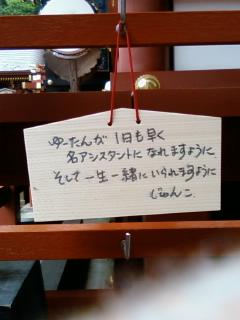 ゆーたんが 1日も早く
名アシスタントになれますように
そして一生一緒にいられますように
じゅんこ